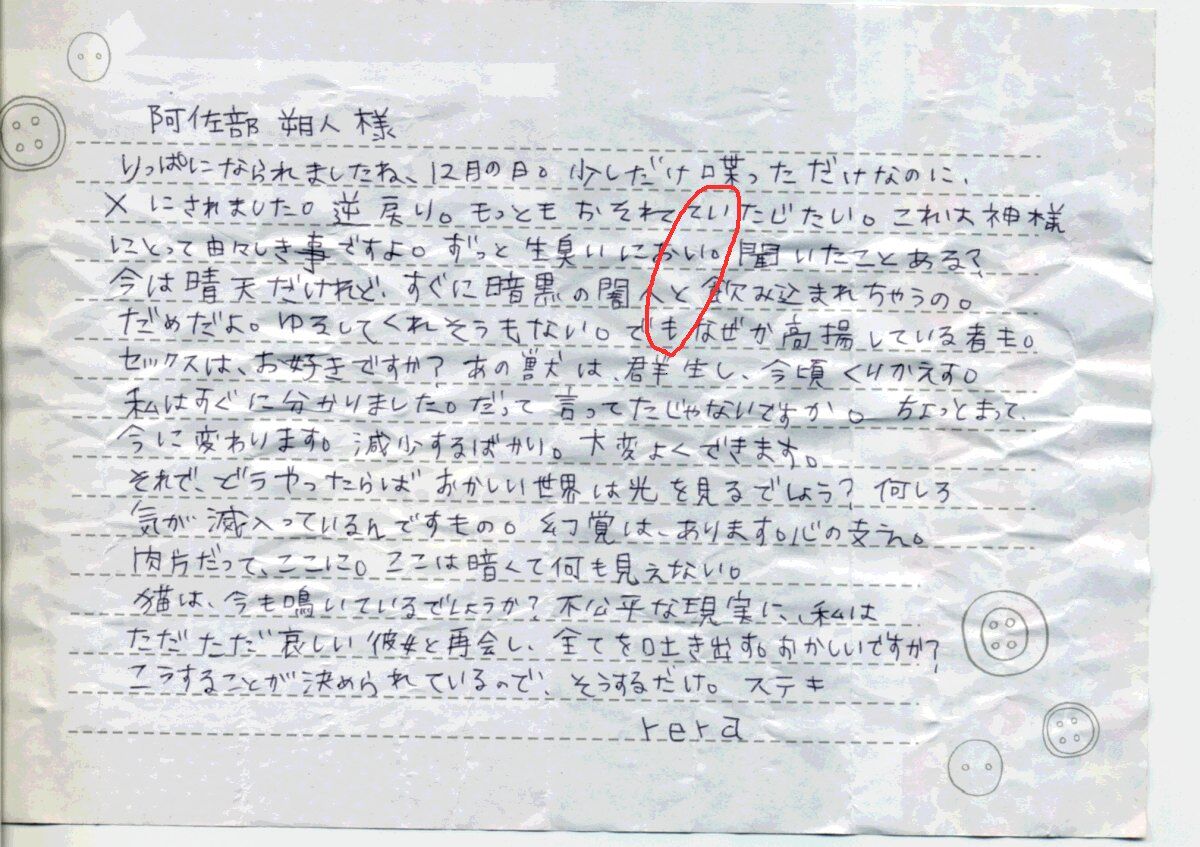 阿佐部 朔人 様
りっぱになられましたね、12月の日。少しだけ喋っただけなのに、
×にされました。逆戻り。もっともおそれてていたじたい。これは神様
にとって由々しき事ですよ。ずっと生臭いにおい。聞いたことある?
今は晴天だけれど、すぐに暗黒の闇人と飲み込まれちゃうの。
だめだよ。ゆるしてくれそうもない。でもなぜか高揚している者も。
セックスは、お好きですか? あの獣は、群生し、今頃くりかえす。
私はすぐに分かりました。だって言ってたじゃないですか。ちょっとまって、
今に変わります。減少するばかり。大変よくできます。
それで、どうやったらばおかしい世界は光を見るでしょう? 何しろ
気が滅入っているんですもの。幻覚は、あります。心の支え。
肉片だって、ここに。ここは暗くて何も見えない。
猫は、今も鳴いているでしょうか? 不公平な現実に、私は
ただただ哀しい彼女と再会し、全てを吐き出す。おかしいですか?
こうすることが決められているので、そうするだけ。ステキ
rera